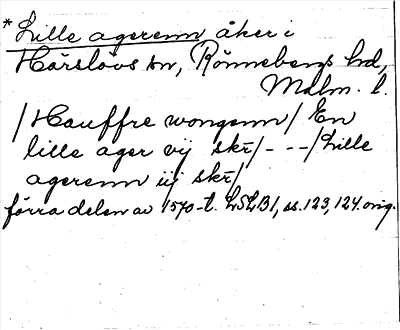 * Lille agerenn åker i
Härslövs sn, Rönnebergs hd,
Malm. l.
/Hauffre wongenn/ En
lille ager vij skr̄/- - -/Lille
agerenn iij skr̄/
förra delen av 1570-t. LSLB1, ss. 123, 124. orig.